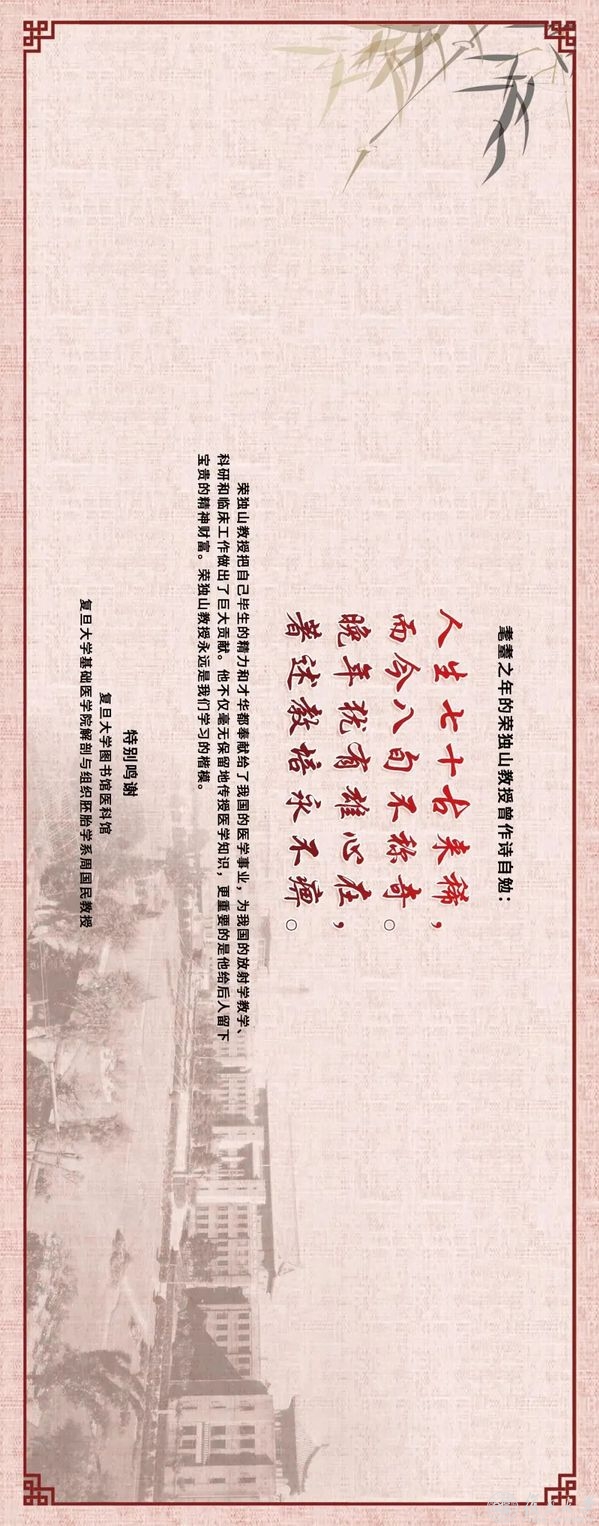 耄耋之年的荣独山教授曾作诗自勉：
人生七十古来稀，
而今八旬不称奇。
晚年犹有雄心在，
著述教培永不痹。
荣独山教授把自己毕生的精力和才华都奉献给了我国的医学事业，为我国的放射学教学、
科研和临床工作做出了巨大贡献。他不仅毫无保留地传授医学知识，更重要的是他给后人留下
宝贵的精神财富。荣独山教授永远是我们学习的楷模。
特别鸣谢
复旦大学图书馆医科馆
复旦大学基础医学院解剖与组织胚胎学系周国民教授